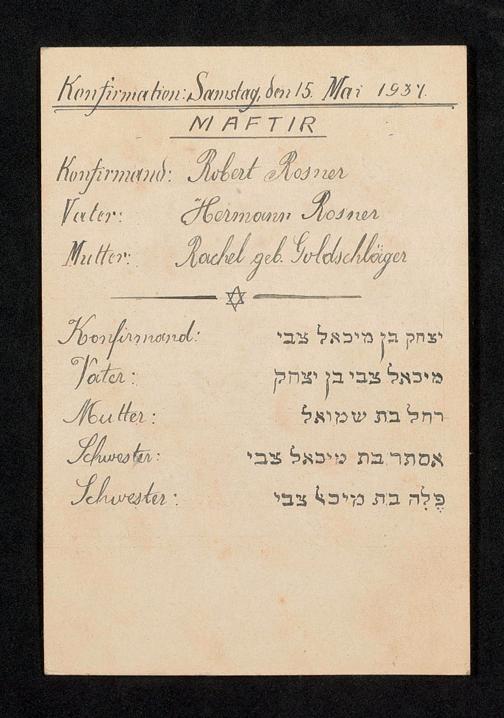 Konfirmation: Samstag, den 15. Mai 1937.
MAFTIR
Konfirmand: Robert Rosner
Vater: Hermann Rosner
Mutter: Rachel geb. Goldschläger
Konfirmand: יצחק בן מיכאל צבי
Vater: מיכאל צבי בן יצחק
Mutter: רחל בת שמואל
Schwester: אסתר בת מיכאל צבי
Schwester: פֶלָה בת מיכאל צבי